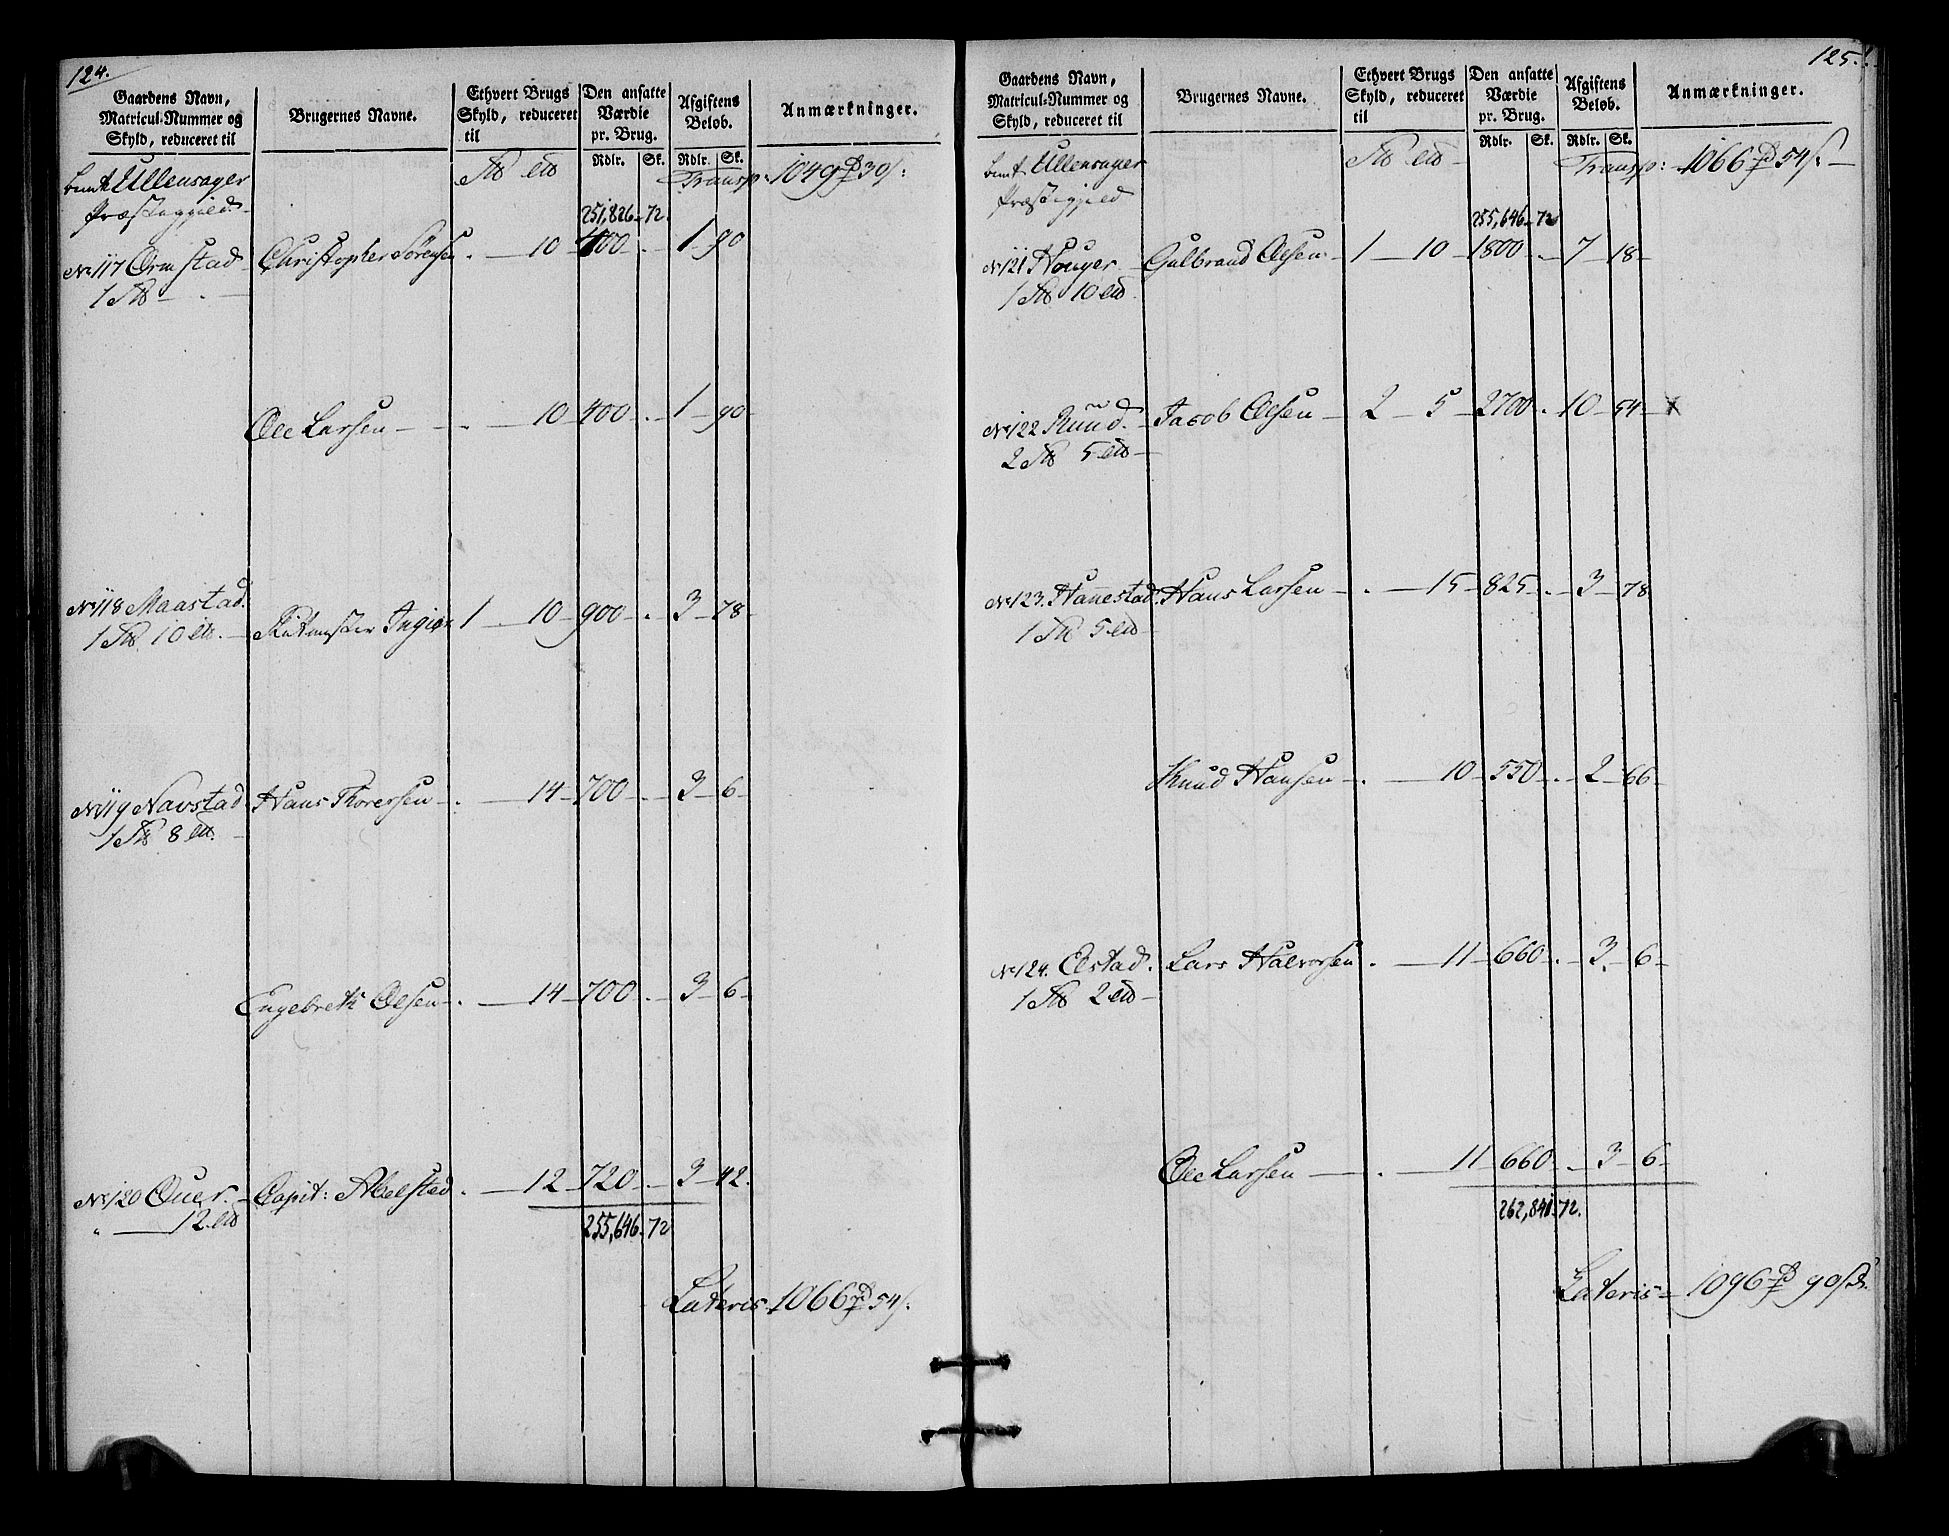 124.
Gaardens Navn,
Matricul-Nummer og
Skyld, reduceret til
Brugernes Navne.
Ethvert Brugs
Skyld, reduceret
til
Den ansatte
Værdie
pr. Brug.
Rdlr. Sk.
Afgiftens
Beløb.
Rdlr. Sk.
Anmærkninger.
Ullensager
Præstegield
Transp: 1049 30 s:
251,826-72.
No 117 Ormstad Christopher Sørensen . 10 400 . 1 90
1
Ole Larsen . 10 400 . 1 90
No 118 Maastad. Ritmester Ingier 1 . 10 900 . 3 78
1 10
No 119 Navstad Hans Thorersen . 14 700 . 3 6
1 8
Engebreth Olsen . 14 700 . 3 6
No 120 Quer. Capit: Abelsted . 12 720 . 3 42.
" 12
255,646.72
Lateris 1066 54 s.
125.
Gaardens Navn,
Matricul-Nummer og
Skyld, reduceret til
Brugernes Navne.
Ethvert Brugs
Skyld, reduceret
til
Den ansatte
Værdie
pr. Brug.
Rdlr. Sk.
Afgiftens
Beløb.
Rdlr. Sk.
Anmærkninger.
Ullensager
Præstegield
Transp: 1066 54 s.
255,646-72
No 121 Houger Gulbrand Olsen 1 10 1800 . 7 18
1 10
No 122 Ruud. Jacob Olsen 2 5 2700 . 10 54 x
2 5
No 123. Hannestad Hans Larsen . 15 825 . 3 78
1 5
Knud Hansen . 10 550 . 2 66
No 124. Elstad. Lars Halvorsen . 11 660 . 3 6
1 2
Ole Larsen . 11 660 . 3 6
262,841.72.
Lateris 1096 90 s